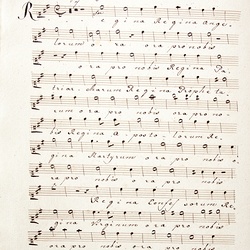 R egina Regina Ange-
lorum o ra ora pro nobis
ora pro nobis Regina Pa-
triar charum Regina Propheta-
rum ora pro nobis ora pro no-
bis Regina A posto lorum Re-
gina Martyrum ora pro nobis o-
ra pro nobis ora pro nobis
Regina Confessorum Re-
gina Virginum ora pro nobis
ora pro nobis ora pro nobis